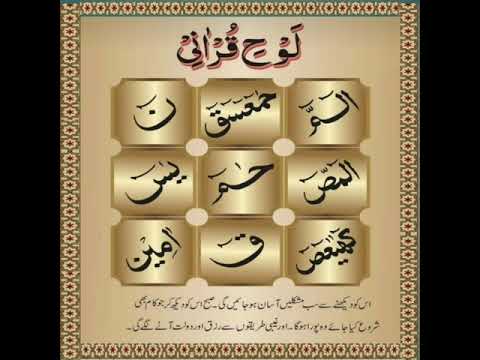 لَوْحِ قُرْاٰنِیْ
الٓمّٓ حٰمٓعٓسٓقٓ نٓ
الٓمّٓصٓ حٰمٓ یٰسٓ
کٓھٰیٰعٓصٓ قٓ اٰمِیْن
اس کو دیکھنے سے سب مشکلیں آسان ہو جائیں گی۔ صبح اس کو دیکھ کر جو کام بھی
شروع کیا جائے وہ پورا ہوگا۔ اور غیبی طریقوں سے رزق اور دولت آنے لگے گی۔